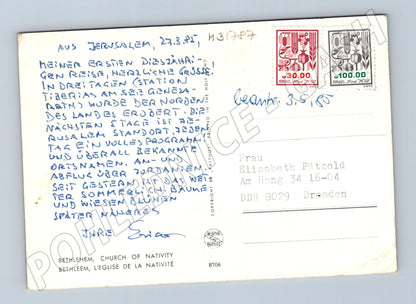 AUS JERUSALEM, 27.3.85,
MEINER ERSTEN DIESJÄHRI-
GEN REISE, HERZLICHE GRÜSSE.
IN DREI TAGEN (STATION
TIBERIAS AM SEE GENEZA-
RETH) WURDE DER NORDEN
DES LANDES EROBERT. DIE
NÄCHSTEN 5 TAGE IST JE-
RUSALEM STANDORT, JEDEN
TAG EIN VOLLES PROGRAMM
UND ÜBERALL BEKANNTE
ORTSNAMEN. AN- UND
ABFLUG ÜBER JORDANIEN.
SEIT GESTERN IST DAS WET-
TER SOMMERLICH. BÄUME
UND WIESEN BLÜHEN
SPÄTER NÄHERES
IHRE
BETHLEHEM, CHURCH OF NATIVITY
BETHLÉEM, L'EGLISE DE LA NATIVITÉ
8706
H31787
30.00
100.00
3.5.85
Frau
Elisabeth Pätzold
Am Hang 34 16-04
DDR 8029 Dresden
POHLSERVICE